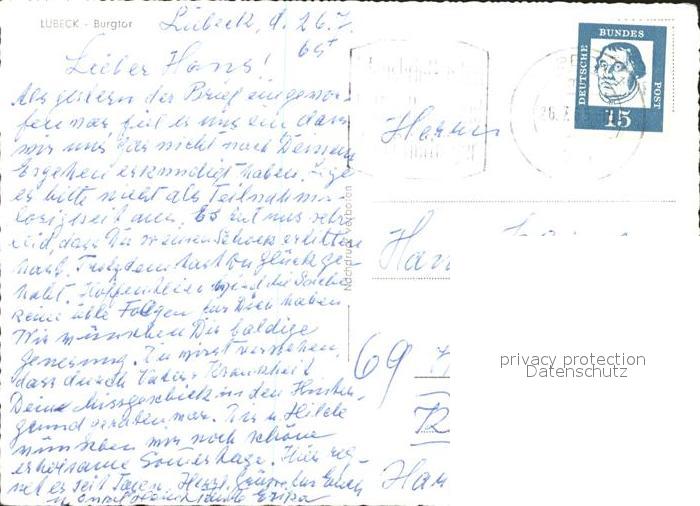 LÜBECK - Burgtor
Lübeck, d. 26.7.
65
Lieber Hans!
Als gestern der Brief eingewor-
fen war, fiel es uns ein dass
wir uns gar nicht nach Deinem
Ergehen erkundigt haben. Lege
es bitte nicht als Teilnahms-
losigkeit aus. Es tut uns sehr
leid, dass Du so einen Schock erlitten
hast. Trotzdem hast Du Glück ge-
habt. Hoffentlich sind die Sache
keine üble Folgen für Dich haben.
Wir wünschen Dir baldige
Genesung. Du wirst verstehen,
dass durch Vaters Krankheit
Deine Missgeschick in den Hinter-
grund geraten war. Dir u. Hilde
wünschen wir noch schöne
erholsame Sommertage. Hier reg-
net es seit Tagen. Herzl. Grüsse für Euch
Tante Erna
Nachdruck verboten
DEUTSCHE
BUNDES
POST
15
Herrn
Han
69
72
Ham
privacy protection
Datenschutz